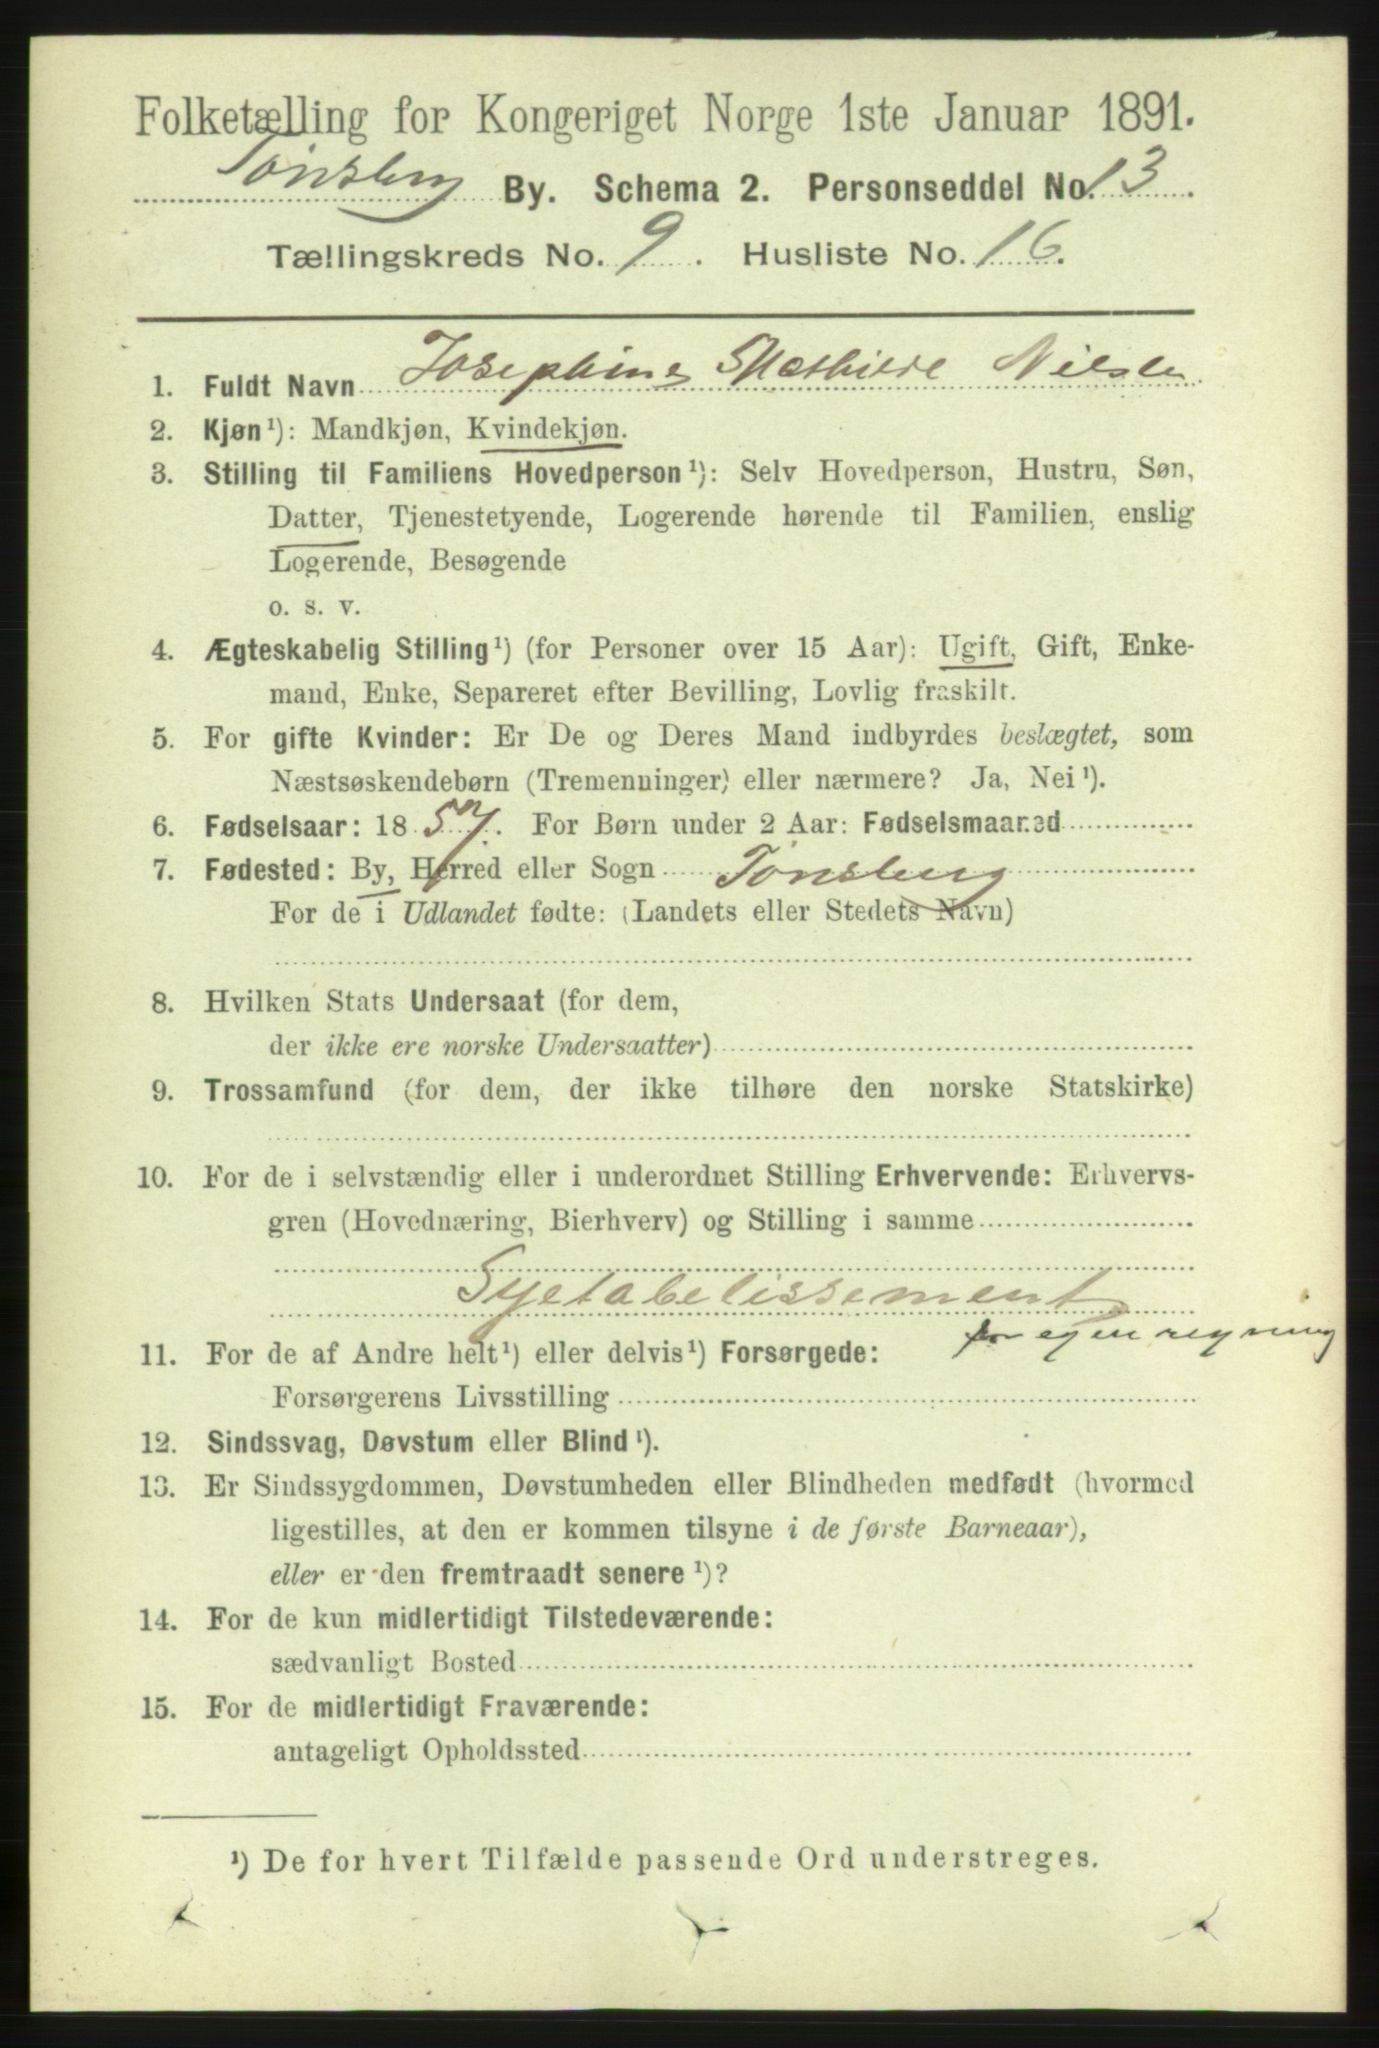 Folketælling for Kongeriget Norge 1ste Januar 1891.
Tønsberg By. Schema 2. Personseddel No. 13.
Tællingskreds No. 9. Husliste No. 16.
1. Fuldt Navn Josephine Mathilde Nielsen
2. Kjøn¹): Mandkjøn, Kvindekjøn.
3. Stilling til Familiens Hovedperson¹): Selv Hovedperson, Hustru, Søn,
Datter, Tjenestetyende, Logerende hørende til Familien, enslig
Logerende, Besøgende
o. s. v.
4. Ægteskabelig Stilling¹) (for Personer over 15 Aar): Ugift, Gift, Enke-
mand, Enke, Separeret efter Bevilling, Lovlig fraskilt.
5. For gifte Kvinder: Er De og Deres Mand indbyrdes beslægtet, som
Næstsøskendebørn (Tremenninger) eller nærmere? Ja, Nei¹).
6. Fødselsaar: 1857. For Børn under 2 Aar: Fødselsmaaned
7. Fødested: By, Herred eller Sogn Tønsberg
For de i Udlandet fødte: (Landets eller Stedets Navn)
8. Hvilken Stats Undersaat (for dem,
der ikke ere norske Undersaatter)
9. Trossamfund (for dem, der ikke tilhøre den norske Statskirke)
10. For de i selvstændig eller i underordnet Stilling Erhvervende: Erhvervs-
gren (Hovednæring, Bierhverv) og Stilling i samme
Syetabelissement
for egen regning
11. For de af Andre helt¹) eller delvis¹) Forsørgede:
Forsørgerens Livsstilling
12. Sindssvag, Døvstum eller Blind¹).
13. Er Sindssygdommen, Døvstumheden eller Blindheden medfødt (hvormed
ligestilles, at den er kommen tilsyne i de første Barneaar),
eller er den fremtraadt senere¹)?
14. For de kun midlertidigt Tilstedeværende:
sædvanligt Bosted
15. For de midlertidigt Fraværende:
antageligt Opholdssted
¹) De for hvert Tilfælde passende Ord understreges.